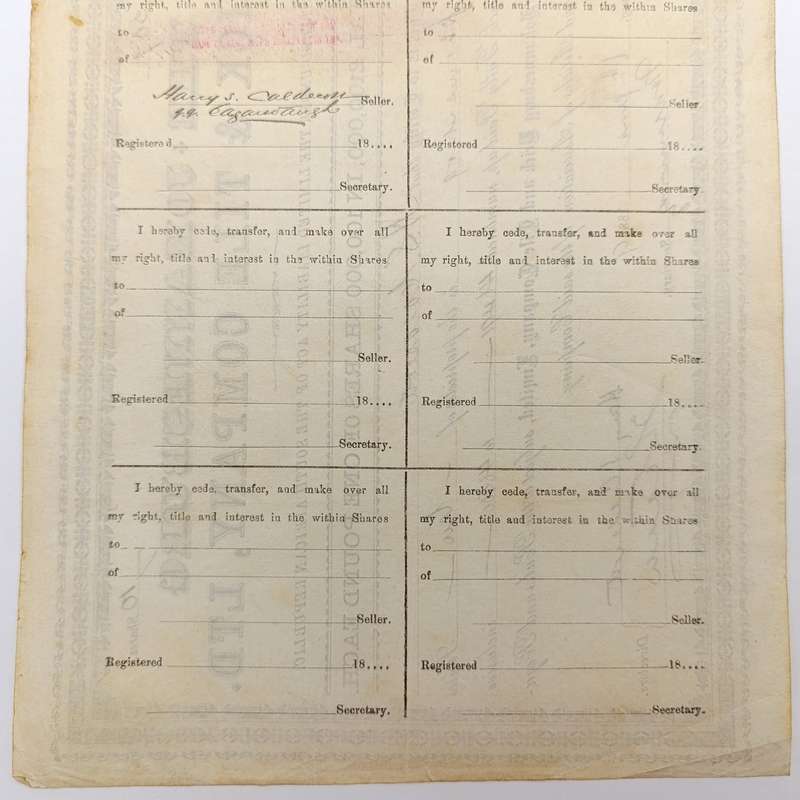 my right, title and interest in the within Shares
to
of
Harry S. Caldecott
Seller.
Registered 18....
Secretary.
my right, title and interest in the within Shares
to
of
Seller.
Registered 18....
Secretary.
I hereby cede, transfer, and make over all
my right, title and interest in the within Shares
to
of
Seller.
Registered 18....
Secretary.
I hereby cede, transfer, and make over all
my right, title and interest in the within Shares
to
of
Seller.
Registered 18....
Secretary.
I hereby cede, transfer, and make over all
my right, title and interest in the within Shares
to
of
Seller.
Registered 18....
Secretary.
I hereby cede, transfer, and make over all
my right, title and interest in the within Shares
to
of
Seller.
Registered 18....
Secretary.